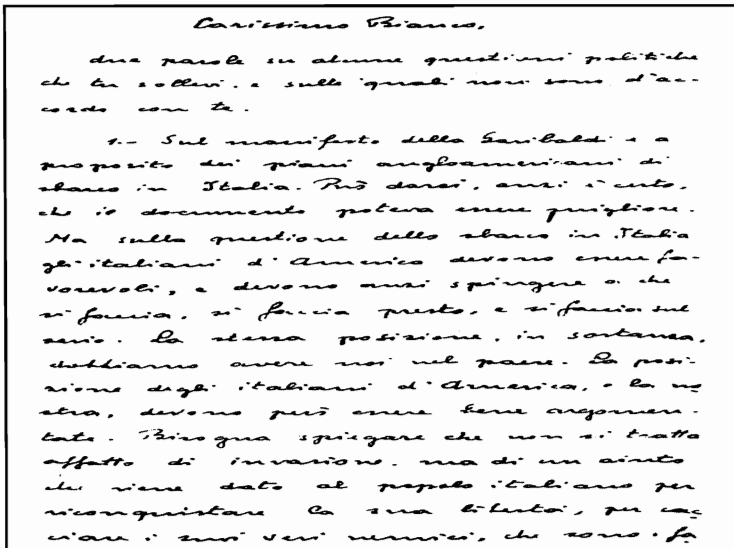 Carissimo Bianco,
due parole su alcune questioni politiche
che tu sollevi, e sulle quali non sono d'ac-
cordo con te.
1.- Sul manifesto della Garibaldi e a
proposito dei piani angloamericani di
sbarco in Italia. Può darsi, anzi è certo,
che il documento poteva essere migliore.
Ma sulla questione dello sbarco in Italia
gli italiani d'America devono essere fa-
vorevoli, e devono anzi spingere a che
si faccia, si faccia presto, e si faccia sul
serio. La stessa posizione, in sostanza,
dobbiamo avere noi nel paese. La posi-
zione degli italiani d'America, e la no
stra, devono però essere bene argomen-
tate. Bisogna spiegare che non si tratta
affatto di invasione, ma di un aiuto
che viene dato al popolo italiano per
riconquistare la sua libertà, per cac
ciare i suoi veri nemici, che sono i fa